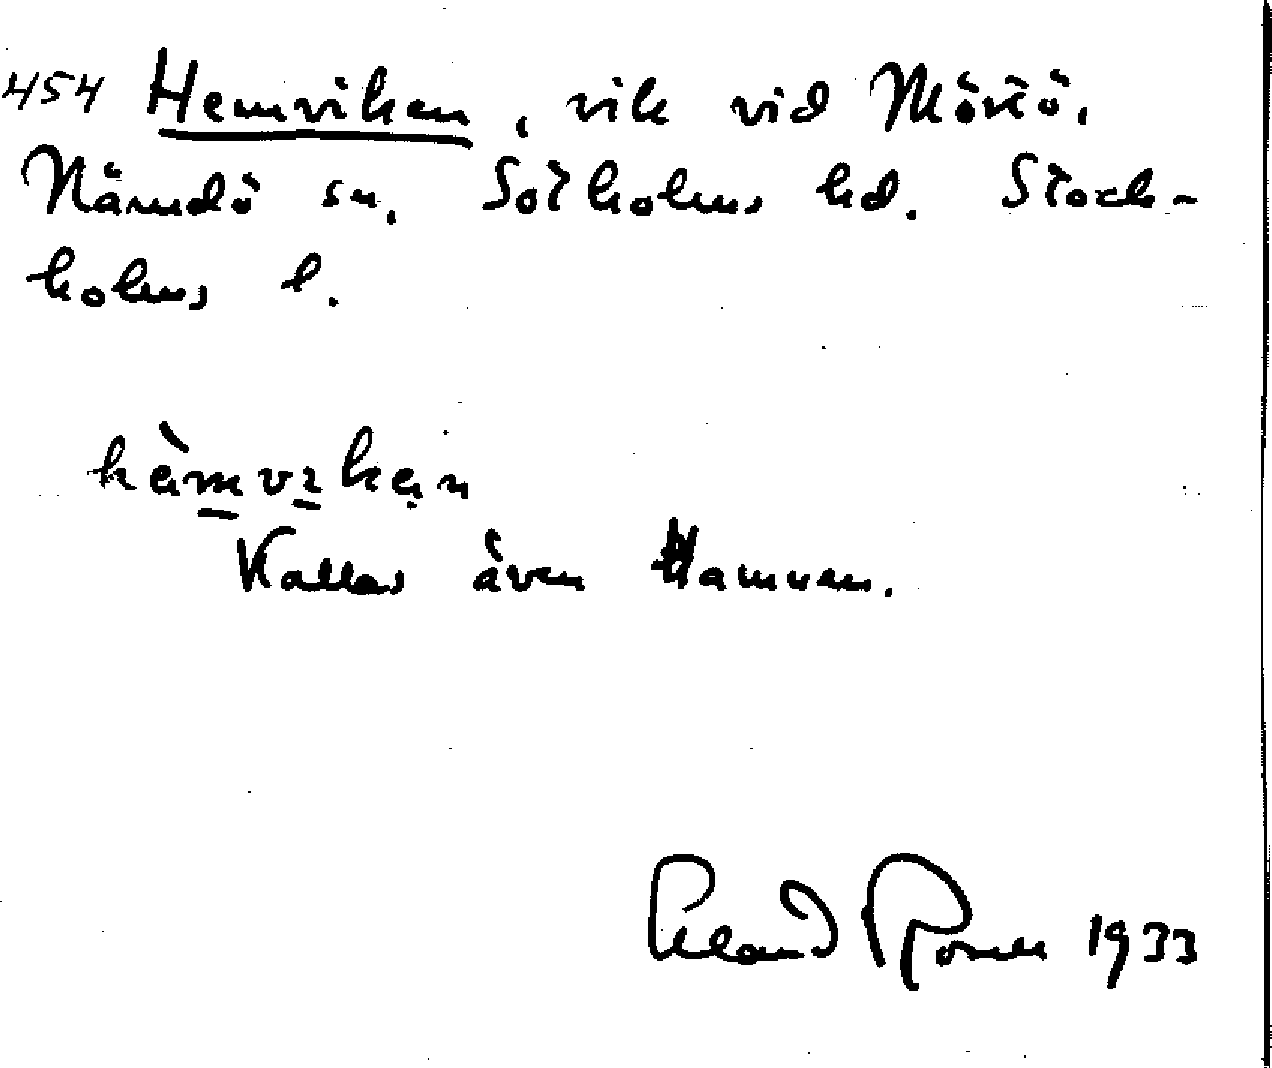 454 Hemviken, vik vid Mörtö,
Nämdö sn. Sotholms hd. Stock-
holms l.
hèmvıkən
Kallas även Hamnen.
Erland Rosell 1933